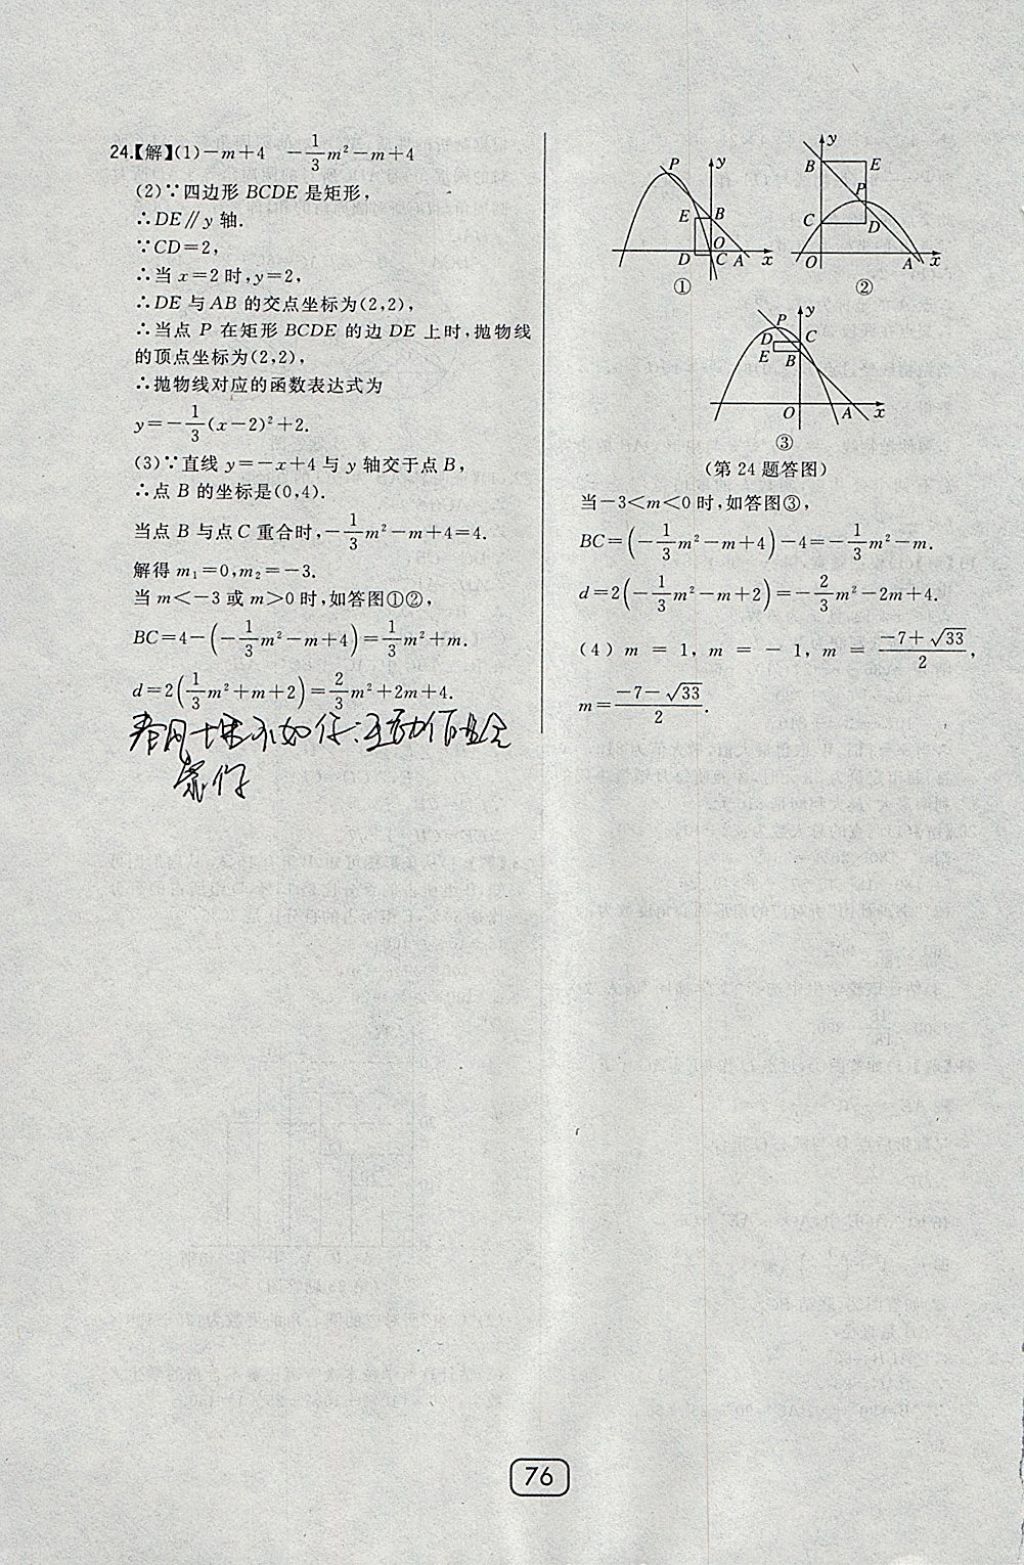 24.【解】(1)−m+4　−1/3m²−m+4
(2)∵四边形 BCDE 是矩形，
∴DE∥y 轴.
∵CD=2，
∴当 x=2 时，y=2，
∴DE 与 AB 的交点坐标为(2,2)，
∴当点 P 在矩形 BCDE 的边 DE 上时，抛物线
的顶点坐标为(2,2)，
∴抛物线对应的函数表达式为
y=−1/3(x−2)²+2.
(3)∵直线 y=−x+4 与 y 轴交于点 B，
∴点 B 的坐标是(0,4).
当点 B 与点 C 重合时，−1/3m²−m+4=4.
解得 m₁=0，m₂=−3.
当 m<−3 或 m>0 时，如答图①②，
BC=4−(−1/3m²−m+4)=1/3m²+m.
d=2(1/3m²+m+2)=2/3m²+2m+4.
春风十里不如你
P y
E B
O
D C A x
①
y
B E
P
C D
O A x
②
y
P
D C
E B
O A x
③
(第 24 题答图)
当−3<m<0 时，如答图③，
BC=(−1/3m²−m+4)−4=−1/3m²−m.
d=2(−1/3m²−m+2)=−2/3m²−2m+4.
(4) m = 1, m = − 1, m = (−7+√33)/2,
m=(−7−√33)/2.
76